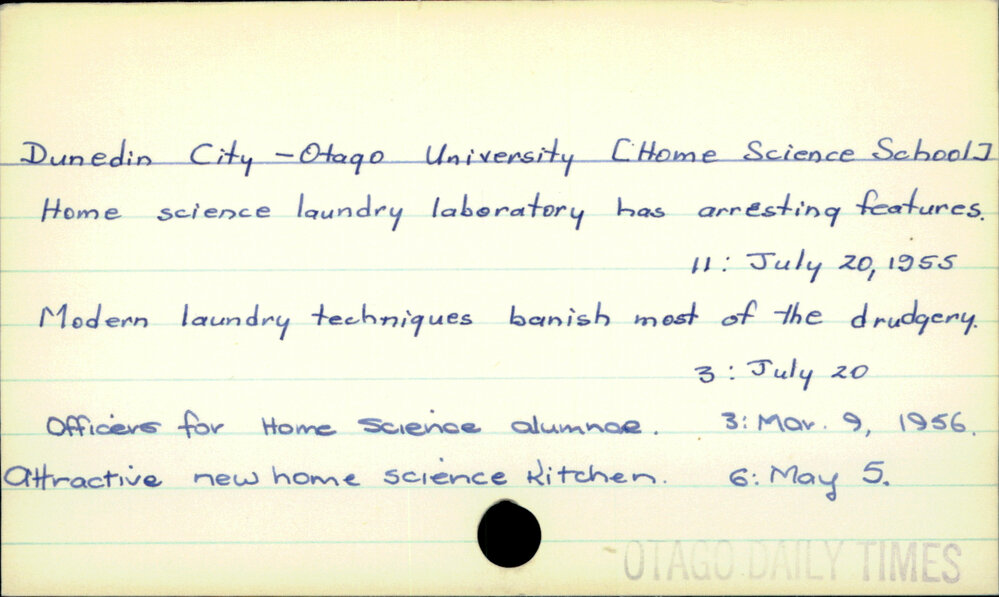 Dunedin City - Otago University [Home Science School]
Home science laundry laboratory has arresting features.
11: July 20, 1955
Modern laundry techniques banish most of the drudgery.
3: July 20
Officers for Home Science alumnae. 3: Mar. 9, 1956.
Attractive new home science kitchen. 6: May 5.
OTAGO DAILY TIMES